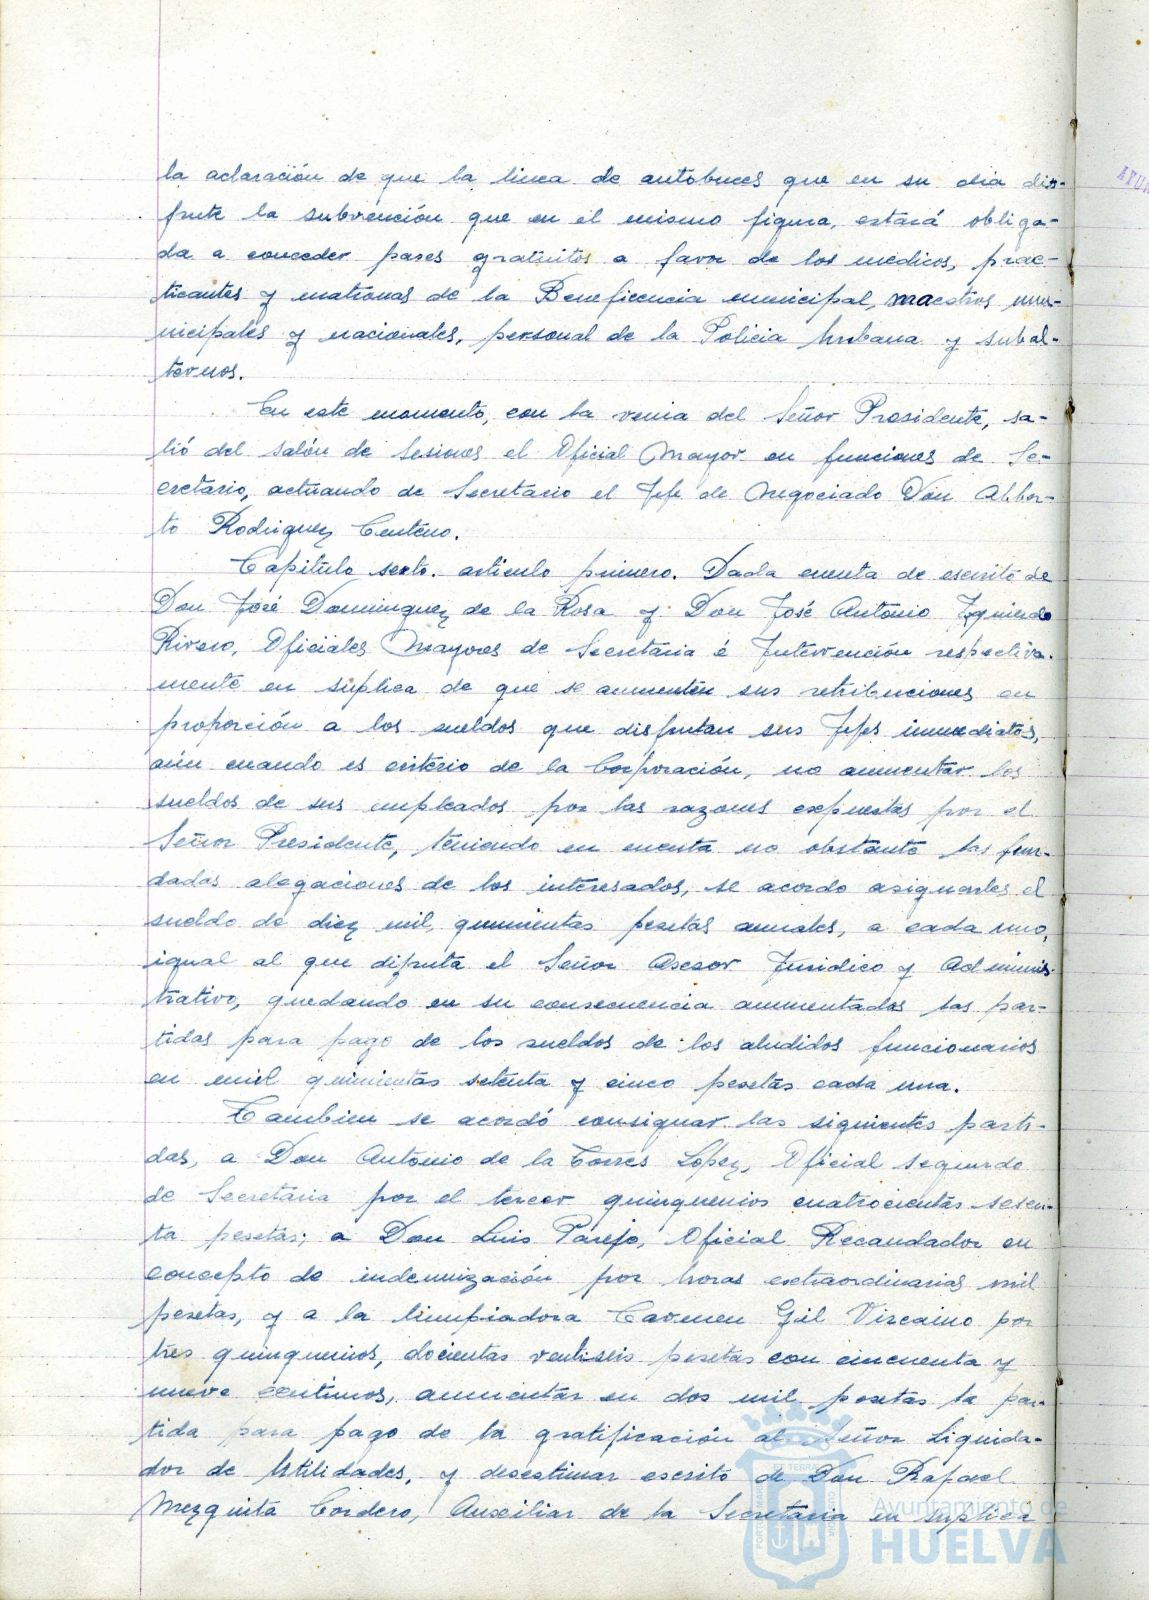 la aclaración de que la linea de autobuces que en su dia dis-
frute la subvención que en él mismo figura, estará obliga-
da a conceder pases gratuitos a favor de los médicos, prac-
ticantes y matronas de la Beneficencia municipal, maestros mu-
nicipales y nacionales, personal de la Policia Urbana y subal-
ternos.
En este momento, con la venia del Señor Presidente, sa-
lió del salón de Sesiones el Oficial Mayor en funciones de Se-
cretario, actuando de Secretario el Jefe de Negociado Don Alber-
to Rodriguez Centeno.
Capitulo sexto. articulo primero. Dada cuenta de escrito de
Don José Dominguez de la Rosa y Don José Antonio Izquierdo
Rivero, Oficiales Mayores de Secretaria é Intervención respectiva-
mente en suplica de que se aumenten sus retribuciones en
proporción a los sueldos que disfrutan sus Jefes inmediatos,
aún cuando es criterio de la Corporación, no aumentar los
sueldos de sus empleados por las razones expuestas por el
Señor Presidente, teniendo en cuenta no obstante las fun-
dadas alegaciones de los interesados, se acordo asignarles el
sueldo de diez mil, quinientas pesetas anuales, a cada uno,
igual al que difruta el Señor Asesor Juridico y Adminis-
trativo, quedando en su consecuencia aumentadas las par-
tidas para pago de los sueldos de los aludidos funcionarios
en mil quinientas setenta y cinco pesetas cada una.
Tambien se acordó consignar las siguientes parti-
das, a Don Antonio de la Torres López, Oficial segundo
de Secretaria por el tercer quinquenios cuatrocientas sesen-
ta pesetas; a Don Luis Parejo, Oficial Recaudador en
concepto de indemnización por horas extraordinarias mil
pesetas, y a la limpiadora Carmen Gil Vizcaino por
tres quinquenios, docientas ventiseis pesetas con cincuenta y
nueve centimos, aumentar en dos mil pesetas la par-
tida para pago de la gratificación al Señor Liquida-
dor de Utilidades, y desestimar escrito de Don Rafael
Mezquita Cordero, Auxiliar de la Secretaria en suplica
Ayuntamiento de
HUELVA